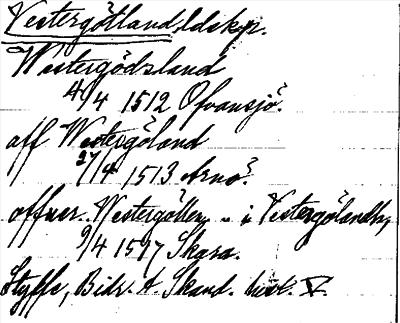 Vestergötland, ldskp.
Westergödsland
4/4 1512 Ofvansjö.
aff Westergöland
27/4 1513 Arnö.
offuer Westergötlen .. i Vestergölandh,
9/4 1517 Skara.
Styffe, Bidr. t. Skand. hist. V.